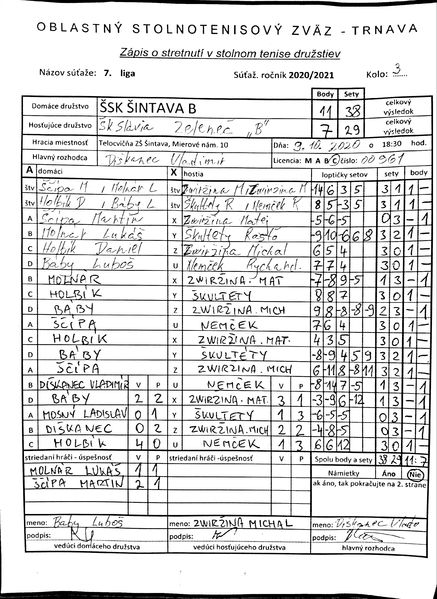 OBLASTNÝ STOLNOTENISOVÝ ZVÄZ - TRNAVA
Zápis o stretnutí v stolnom tenise družstiev
Názov súťaže: 7. liga Súťaž. ročník 2020/2021 Kolo: 3
Body Sety
Domáce družstvo ŠSK ŠINTAVA B 11 38 celkový výsledok
Hosťujúce družstvo ŠK Slávia Zeleneč "B" 7 29 celkový výsledok
Hracia miestnosť Telocvičňa ZŠ Šintava, Mierové nám. 10 Dňa: 9.10.2020 o 18:30 hod.
Hlavný rozhodca Diskanec Vladimír Licencia: M A B C číslo: 00961
A domáci X hostia loptičky setov sety body
štv Ščípa M, Molnár L štv Zwiržina M Zwiržina M -14 6 3 5 3 1 1 -
štv Holbík D, Baby L štv Škultéty R, Nemček R 8 3 5 3 0 1 -
A Ščípa Martin X Zwiržina Matej -5-6-5 0 3 - 1
B Molnár Lukáš Y Škultéty Rasťo -9 10 -6 6 8 3 2 1 -
C Holbík Daniel Z Zwiržina Michal 6 5 4 3 0 1 -
D Baby Ľuboš U Nemček 7 7 4 3 0 1 -
B MOLNÁR X ZWIRŽINA. MAT -7-8 9-5 1 3 - 1
C HOLBÍK Y ŠKULTETY 8 8 7 3 0 1 -
D BÁBY Z ZWIRŽINA. MICH 9 8 -8-8-9 2 3 - 1
A ŠČÍPA U NEMČEK 7 6 4 3 0 1 -
C HOLBÍK X ZWIRŽINA. MAT. 4 3 5 3 0 1 -
D BÁBY Y ŠKULTÉTY -8-9 4 5 9 3 2 1 -
A ŠČÍPA Z ZWIRŽINA. MICH 6-11 8-8 11 3 2 1 -
B DISKANEC VLADIMÍR V P U NEMČEK V P -8-14 7-5 1 3 - 1
D BÁBY 2 2 X ZWIRŽINA. MAT 3 1 -3-9 6-12 1 3 - 1
A MOSNÝ LADISLAV 0 1 Y ŠKULTETY 1 3 -6-5-5 0 3 - 1
B DISKANEC 0 2 Z ZWIRŽINA. MICH 2 2 -4-8-5 0 3 - 1
C HOLBÍK 4 0 U NEMČEK 1 3 6 6 12 3 0 1 -
striedaní hráči - úspešnosť V P striedaní hráči - úspešnosť V P Spolu body a sety 38 29 11:7
MOLNÁR LUKÁŠ 1 1 Námietky Áno Nie
ŠČÍPA MARTIN 2 1 ak áno, tak pokračujte na 2. strane
meno: Baby Ľuboš meno: ZWIRŽINA MICHAL meno: Diskanec Vlado
podpis: podpis: podpis:
vedúci domáceho družstva vedúci hosťujúceho družstva hlavný rozhodca